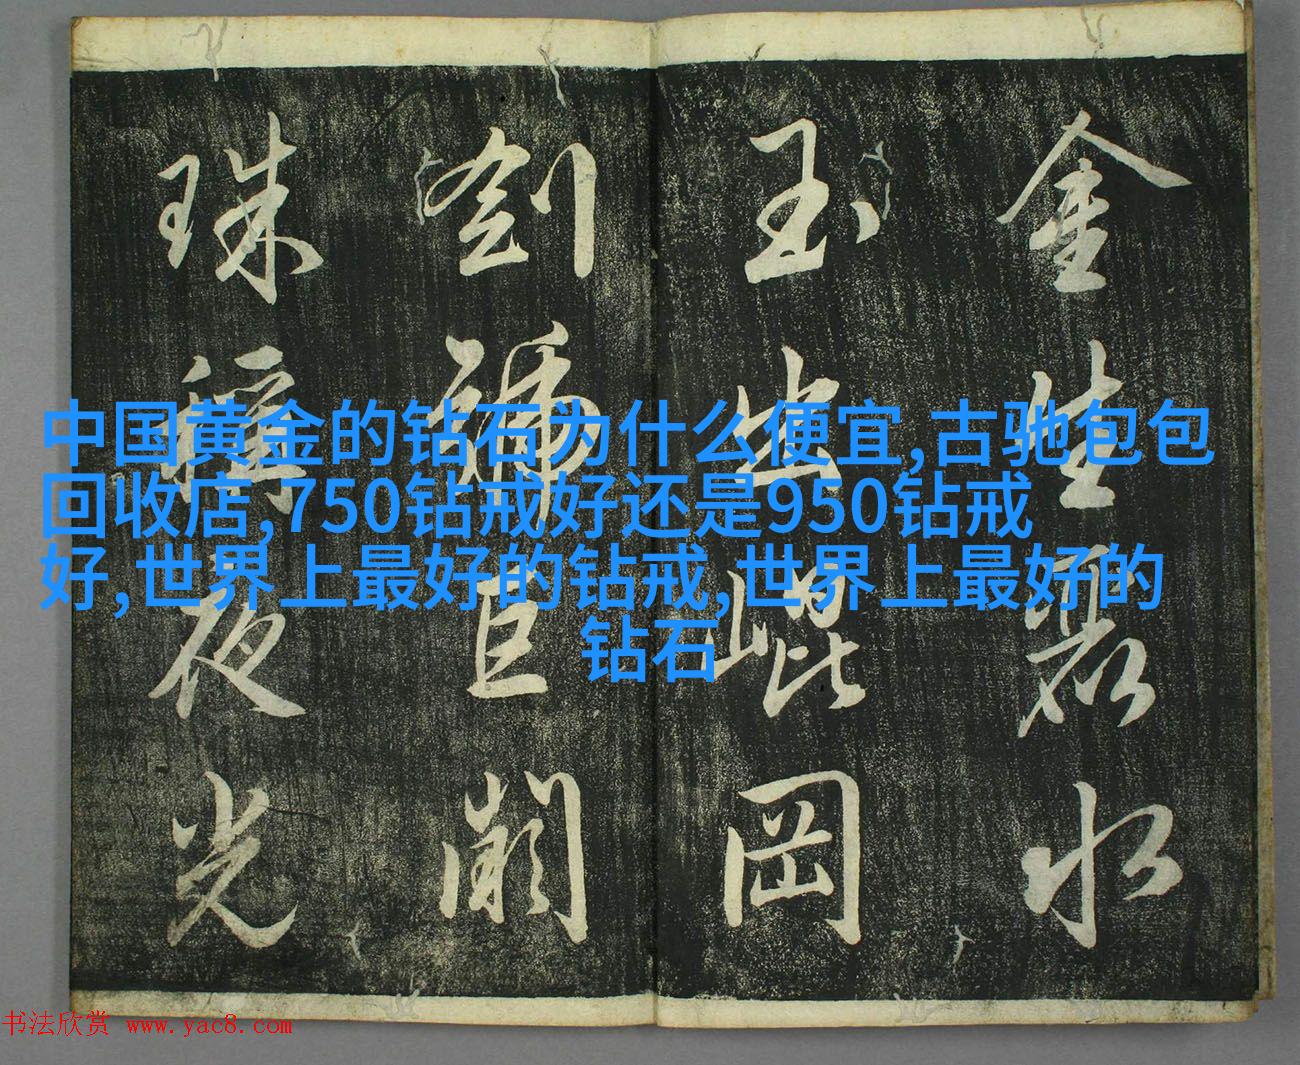 金生麗水
玉出崐岡
劍號巨闕
珠稱夜光
中国黄金的钻石为什么便宜,古驰包包
回收店,750钻戒好还是950钻戒
好,世界上最好的钻戒,世界上最好的
钻石
书法欣赏 www.yac8.com